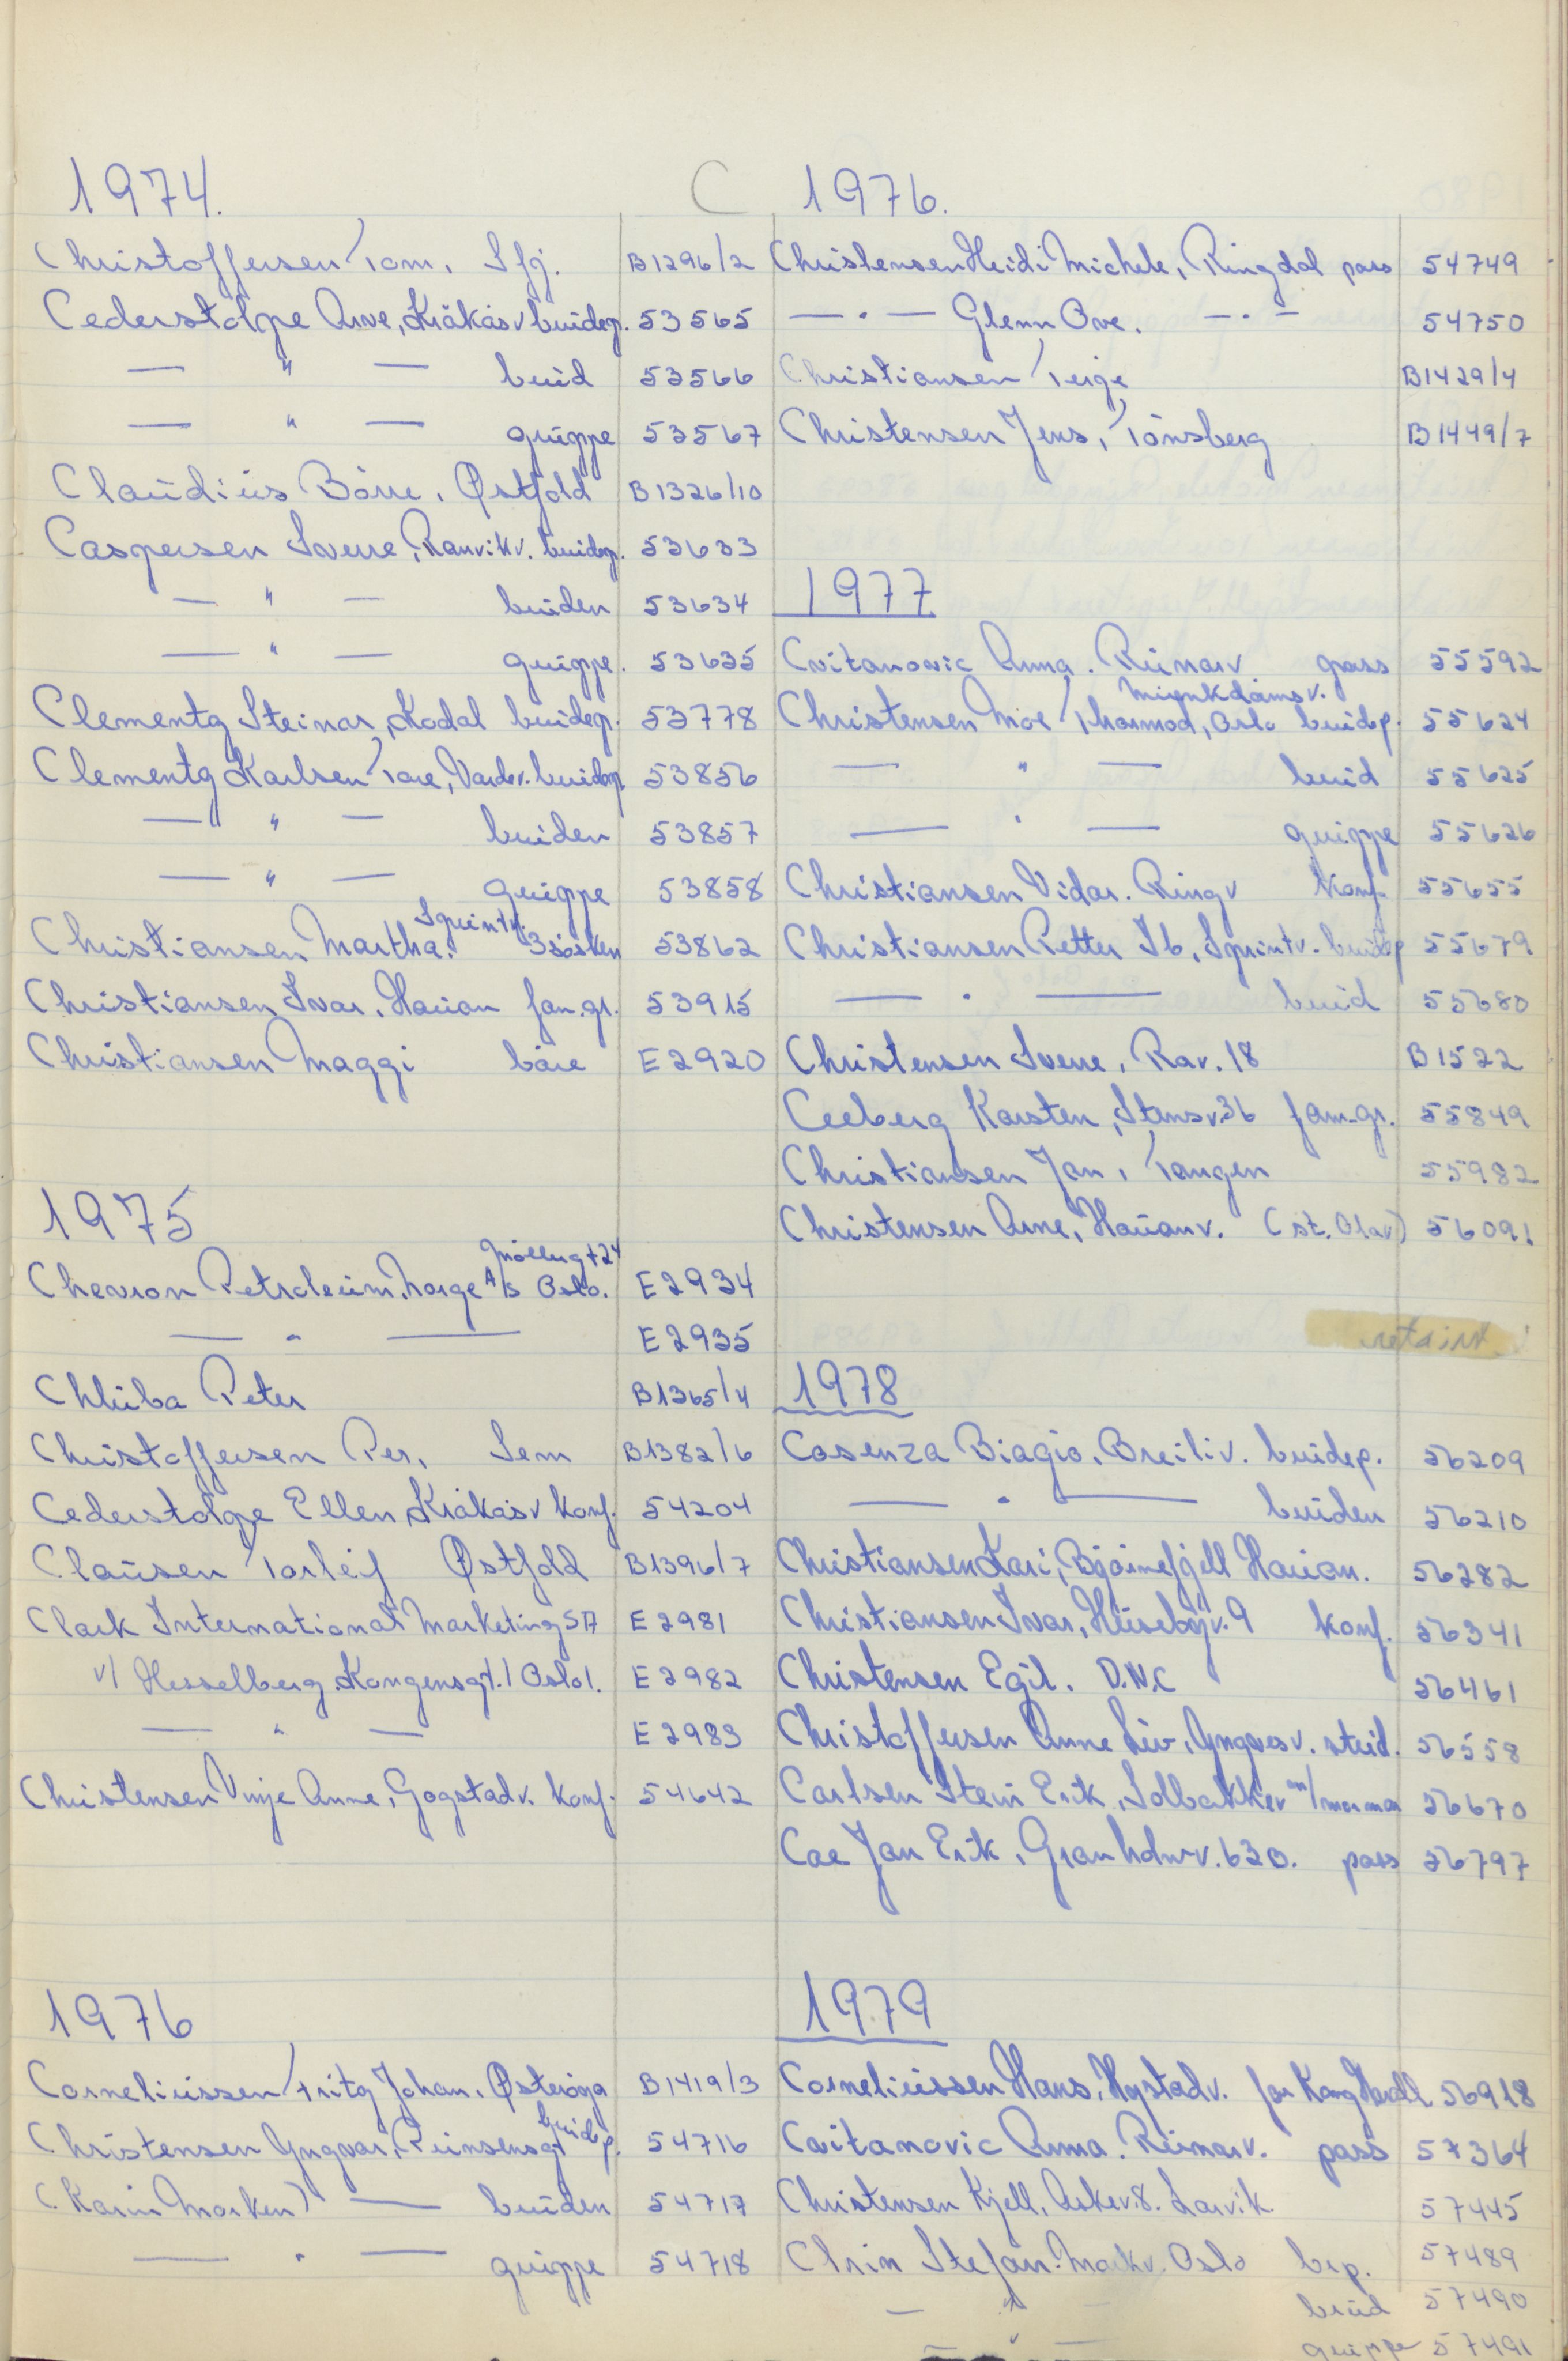 C
1974.
Christoffersen Tom, Sfj. B1296/2
Cederstolpe Arve, Kråkåsv brudep. 53565
— " — brud 53566
— " — gruppe 53567
Claudius Börre, Østfold B1326/10
Caspersen Sverre, Ranvikv. brudep. 53633
— " — bruden 53634
— " — gruppe. 53635
Clementz Steinar, Kodal brudep. 53778
Clementz Karlsen Tore, Vardev. brudep 53856
— " — bruden 53857
— " — gruppe 53858
Sprintv.
Christiansen Martha. 3 søsken 53862
Christiansen Ivar, Hauan fam.gr. 53915
Christiansen Maggi båre E2920
1975
Möllergt 24
Chevron Petroleum Norge A/S Oslo. E2934
— " — E2935
Chluba Peter B1365/4
Christoffersen Per, Sem B1382/6
Cederstolpe Ellen, Kråkåsv konf. 54204
Clausen Torleif Østfold B1396/7
Clark International Marketing SA E2981
v/ Hesselberg, Kongensgt. 1 Oslo 1. E2982
— " — E2983
Christensen Vinje Anne, Gogstadv. konf. 54642
1976
Corneliussen Fritz Johan, Østerøya B1419/3
Christensen Yngvar, Prinsensgt brudep. 54716
(Karin Marken) — bruden 54717
— " — gruppe 54718
1976.
Christensen Heidi Michele, Ringdal pass 54749
— " — Glenn Ove. — " — 54750
Christiansen Terje B1429/4
Christensen Jens, Tönsberg B1449/7
1977
Cvitanovic Anna. Runarv pass 55592
Munkdamsv.
Christensen Moe Thormod, Oslo brudep. 55624
— " — brud 55625
— " — gruppe 55626
Christiansen Vidar. Ringv konf. 55655
Christiansen Petter Ib, Sprintv. brudep 55679
— " — brud 55680
Christensen Sverre, Rav. 18 B1522
Ceeberg Karsten, Stansv.36 fam.gr. 55849
Christiansen Jan, Tangen 55982
Christensen Arne, Hauanv. (St. Olav) 56091
retaint
1978
Cosenza Biagio, Breiliv. brudep. 56209
— " — bruden 56210
Christiansen Kari, Bjørnefjell Hauan. 56282
Christiansen Ivar, Husebyv. 9 konf. 56341
Christensen Egil. D.N.C 56461
Christoffersen Anne Liv, Yngvesv. stud. 56558
Carlsen Stein Erik, Solbakkev m/mormor 56670
Coe Jan Erik, Granholmv. 63B. pass 56797
1979
Corneliussen Hans, Nystadv. for Kong Harald 56918
Cvitanovic Anna. Runarv. pass 57364
Christensen Kjell, Askev. 8. Larvik 57445
Chrin Stefan. Markv. Oslo brp. 57489
— " — brud 57490
— " — gruppe 57491